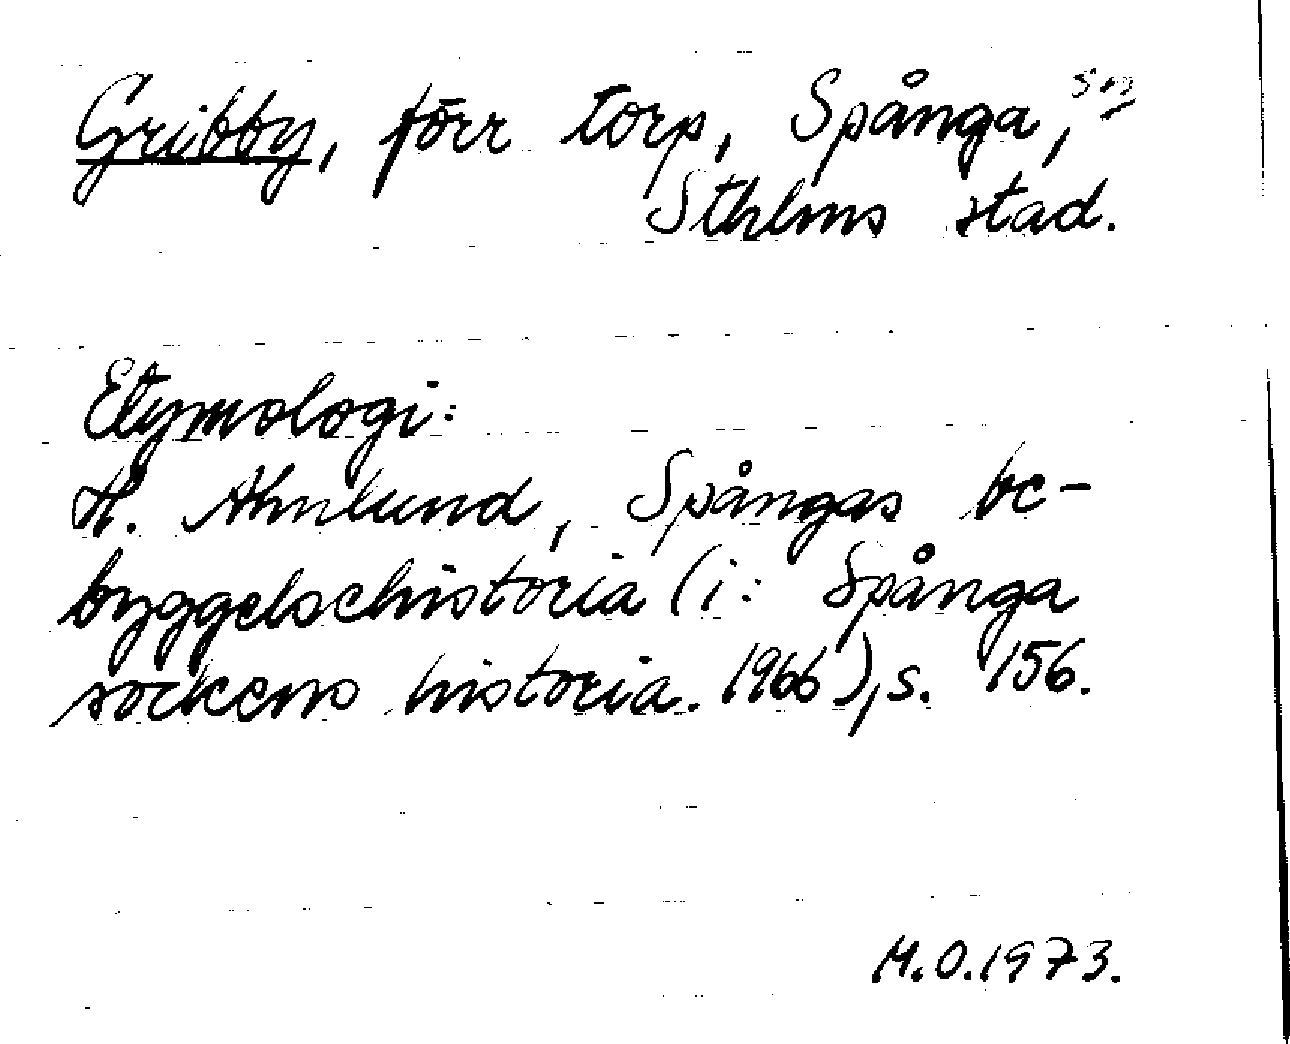 Gribby, förr torp, Spånga, sn
Sthlms stad.
Etymologi:
H. Ahnlund, Spångas be-
byggelsehistoria (i: Spånga
sockens historia. 1966), s. 156.
M.O.1973.